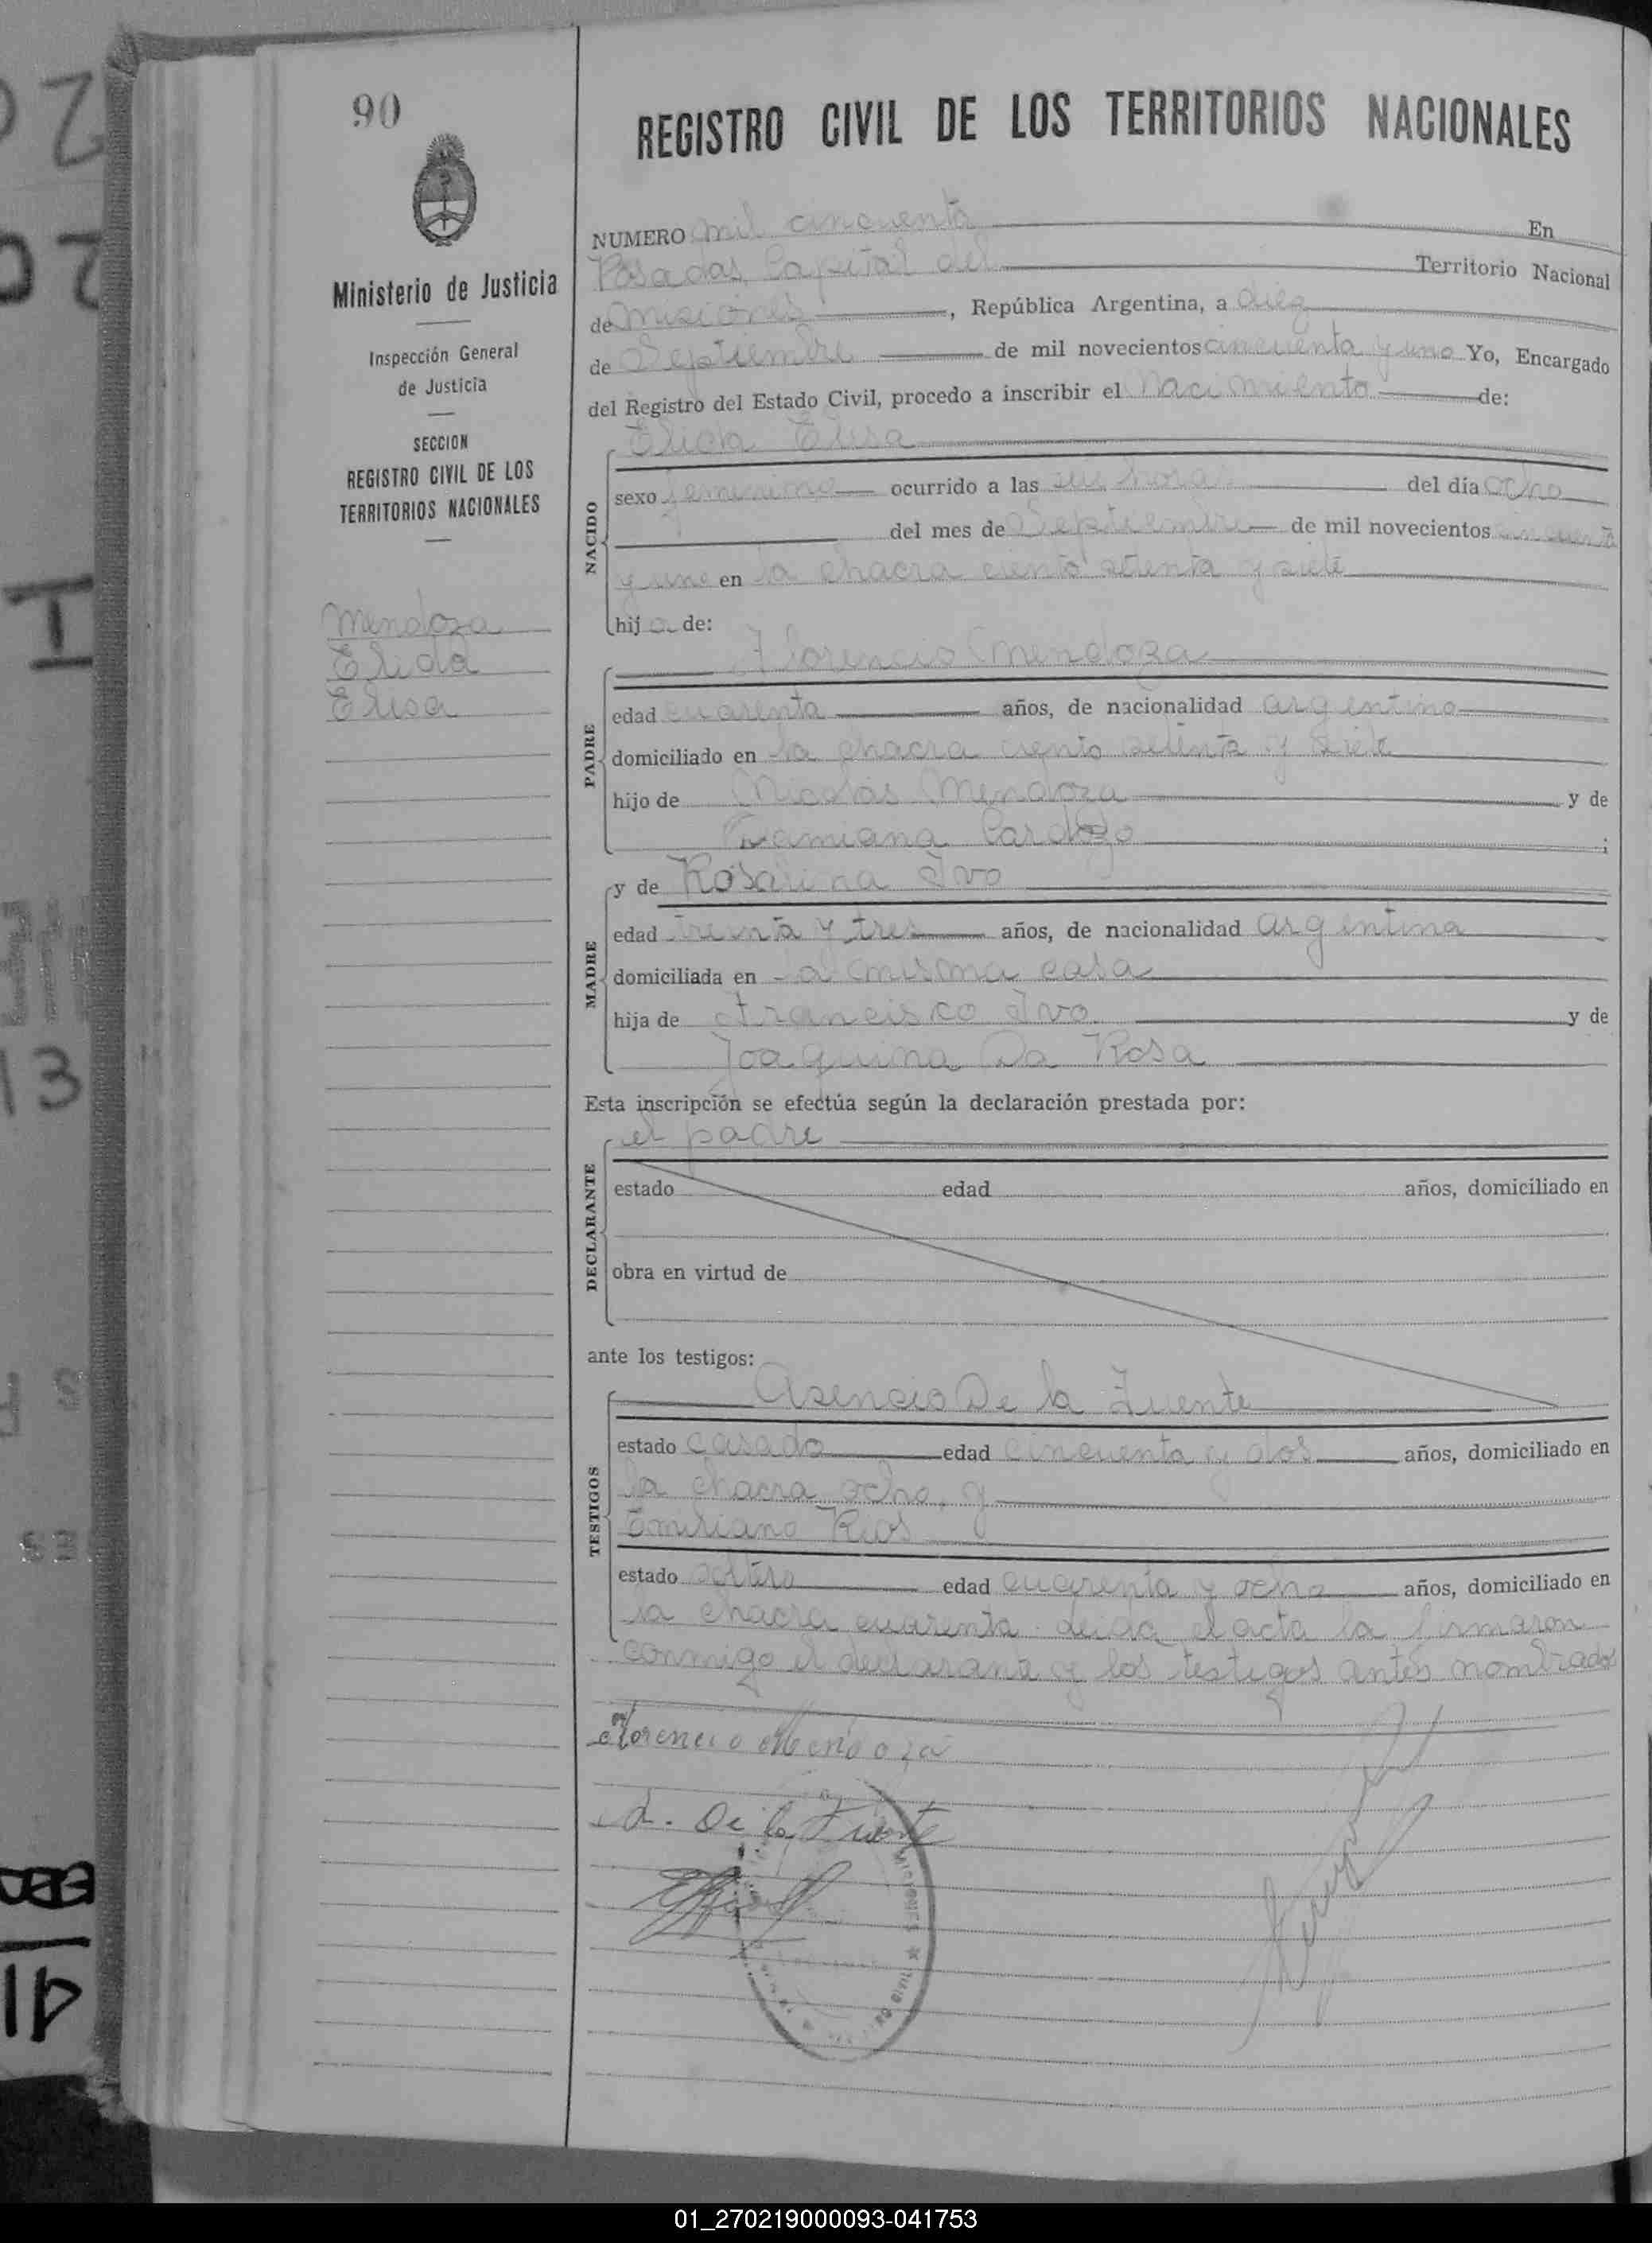 90
Ministerio de Justicia
Inspección General
de Justicia
SECCION
REGISTRO CIVIL DE LOS
TERRITORIOS NACIONALES
Mendoza
Elida
Elisa
REGISTRO CIVIL DE LOS TERRITORIOS NACIONALES
NUMERO mil cincuenta En
Posadas, Capital del Territorio Nacional
de Misiones, República Argentina, a diez
de Septiembre de mil novecientos cincuenta y uno Yo, Encargado
del Registro del Estado Civil, procedo a inscribir el nacimiento de:
Elida Elisa
NACIDO
sexo femenino ocurrido a las seis horas del día ocho
del mes de Septiembre de mil novecientos cincuenta
y uno en la chacra ciento setenta y siete
hija de:
Florencio Mendoza
PADRE
edad cuarenta años, de nacionalidad argentino
domiciliado en la chacra ciento setenta y siete
hijo de Nicolás Mendoza y de
Damiana Cardozo;
y de Rosalina Ivo
MADRE
edad treinta y tres años, de nacionalidad argentina
domiciliada en la misma casa
hija de Francisco Ivo y de
Joaquina Da Rosa
Esta inscripción se efectúa según la declaración prestada por:
el padre
DECLARANTE
estado edad años, domiciliado en
obra en virtud de
ante los testigos:
Asencio De la Fuente
TESTIGOS
estado casado edad cincuenta y dos años, domiciliado en
la chacra ocho, y
Emiliano Rios
estado soltero edad cuarenta y ocho años, domiciliado en
la chacra cuarenta. Leida el acta la firmaron
conmigo el declarante y los testigos antes nombrados
Florencio Mendoza
A. De la Fuente
MISIONES
01_270219000093-041753